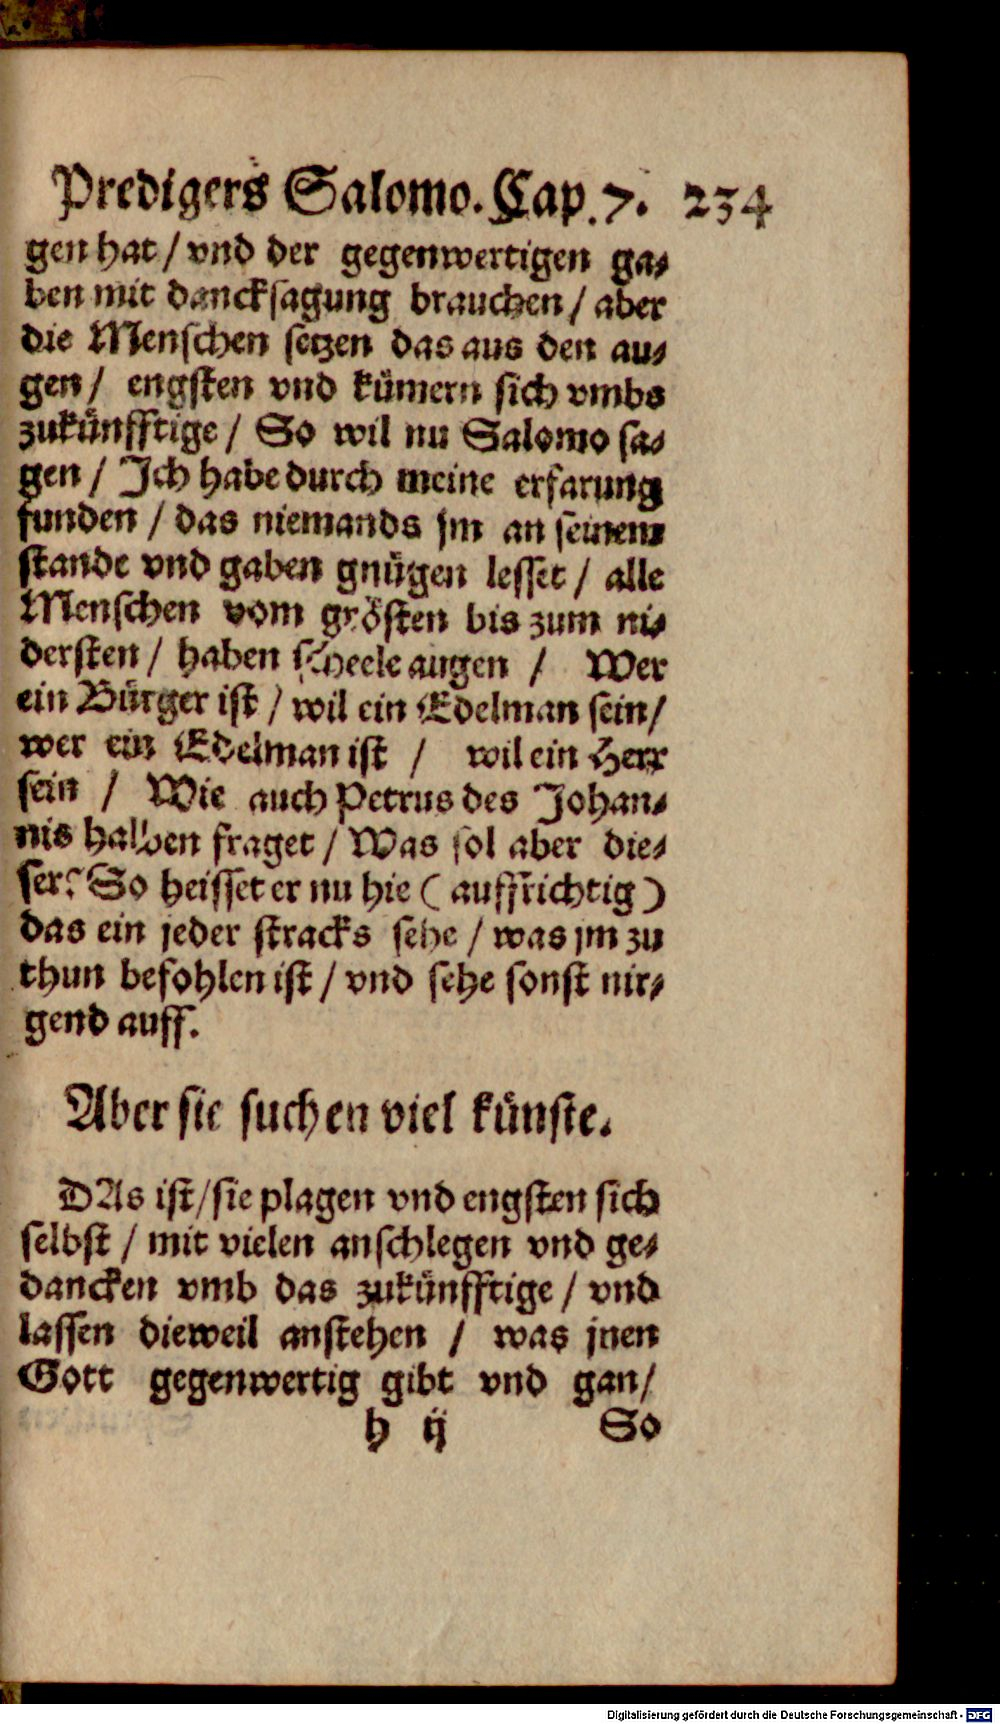 Predigers Salomo. Cap. 7. 234
gen hat / vnd der gegenwertigen ga-
ben mit dancksagung brauchen / aber
die Menschen setzen das aus den au-
gen / engsten vnd kümern sich vmbs
zukünfftige / So wil nu Salomo sa-
gen / Ich habe durch meine erfarung
funden / das niemands jm an seinem
stande vnd gaben gnügen lesset / alle
Menschen vom grösten bis zum ni-
dersten / haben scheele augen / Wer
ein Bürger ist / wil ein Edelman sein /
wer ein Edelman ist / wil ein Herr
sein / Wie auch Petrus des Johan-
nis halben fraget / Was sol aber die-
ser? So heisset er nu hie ( auffrichtig )
das ein jeder stracks sehe / was jm zu
thun befohlen ist / vnd sehe sonst nir-
gend auff.
Aber sie suchen viel künste.
DAs ist / sie plagen vnd engsten sich
selbst / mit vielen anschlegen vnd ge-
dancken vmb das zukünfftige / vnd
lassen dieweil anstehen / was jnen
Gott gegenwertig gibt vnd gan /
h ij So
Digitalisierung gefördert durch die Deutsche Forschungsgemeinschaft - DFG